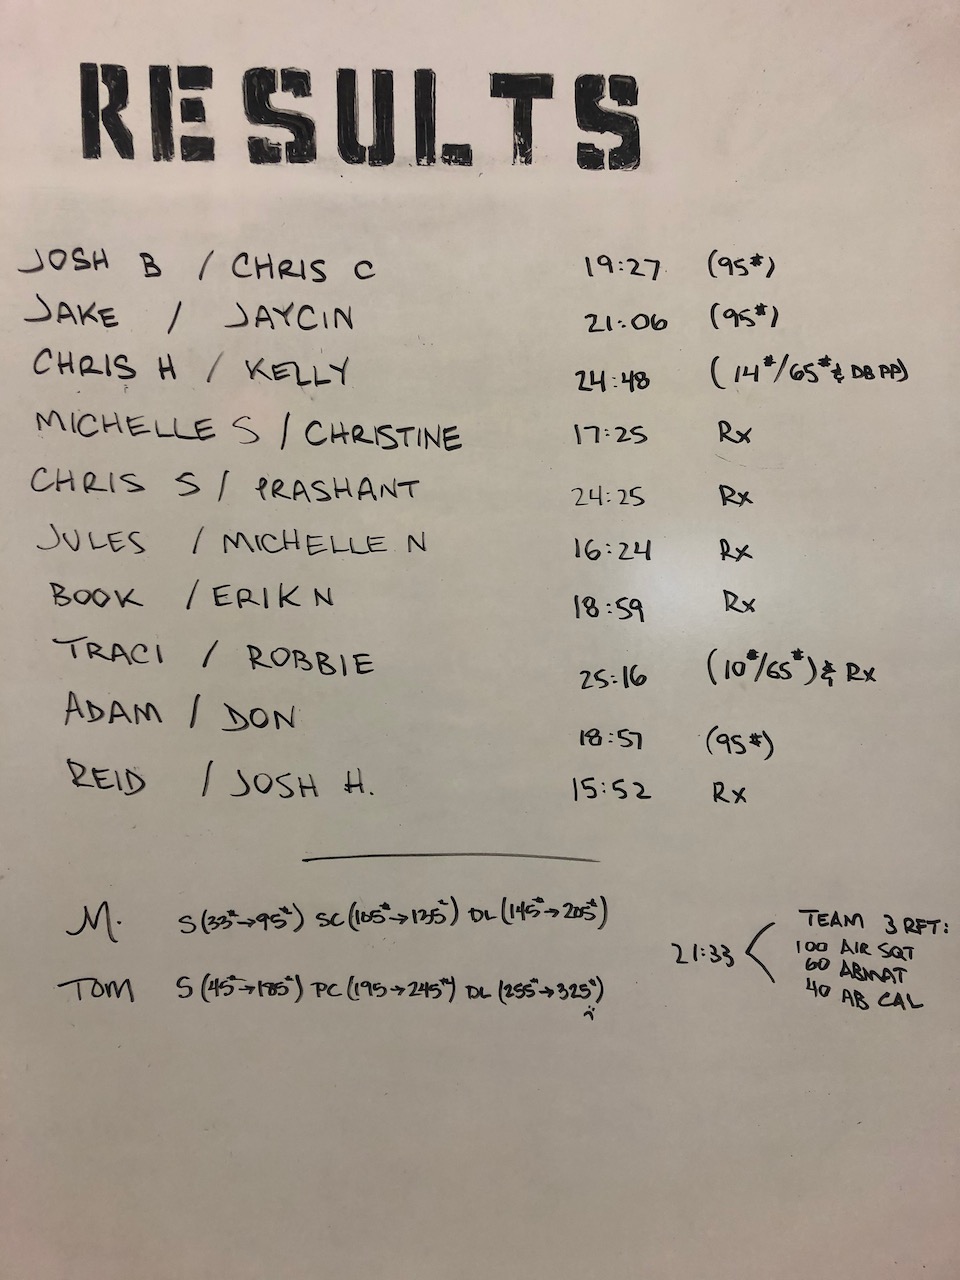 RESULTS
JOSH B / CHRIS C 19:27 (95#)
JAKE / JAYCIN 21:06 (95#)
CHRIS H / KELLY 24:48 (14#/65# & DB PP)
MICHELLE S / CHRISTINE 17:25 Rx
CHRIS S / PRASHANT 24:25 Rx
JULES / MICHELLE N 16:24 Rx
BOOK / ERIK N 18:59 Rx
TRACI / ROBBIE 25:16 (10#/65#) & Rx
ADAM / DON 18:57 (95#)
REID / JOSH H. 15:52 Rx
M. S (33#→95#) SC (105#→135#) DL (145#→205#)
TOM S (45#→185#) PC (195→245#) DL (255#→325#)
21:33 <
TEAM 3 RFT:
100 AIR SQT
60 ABMAT
40 AB CAL